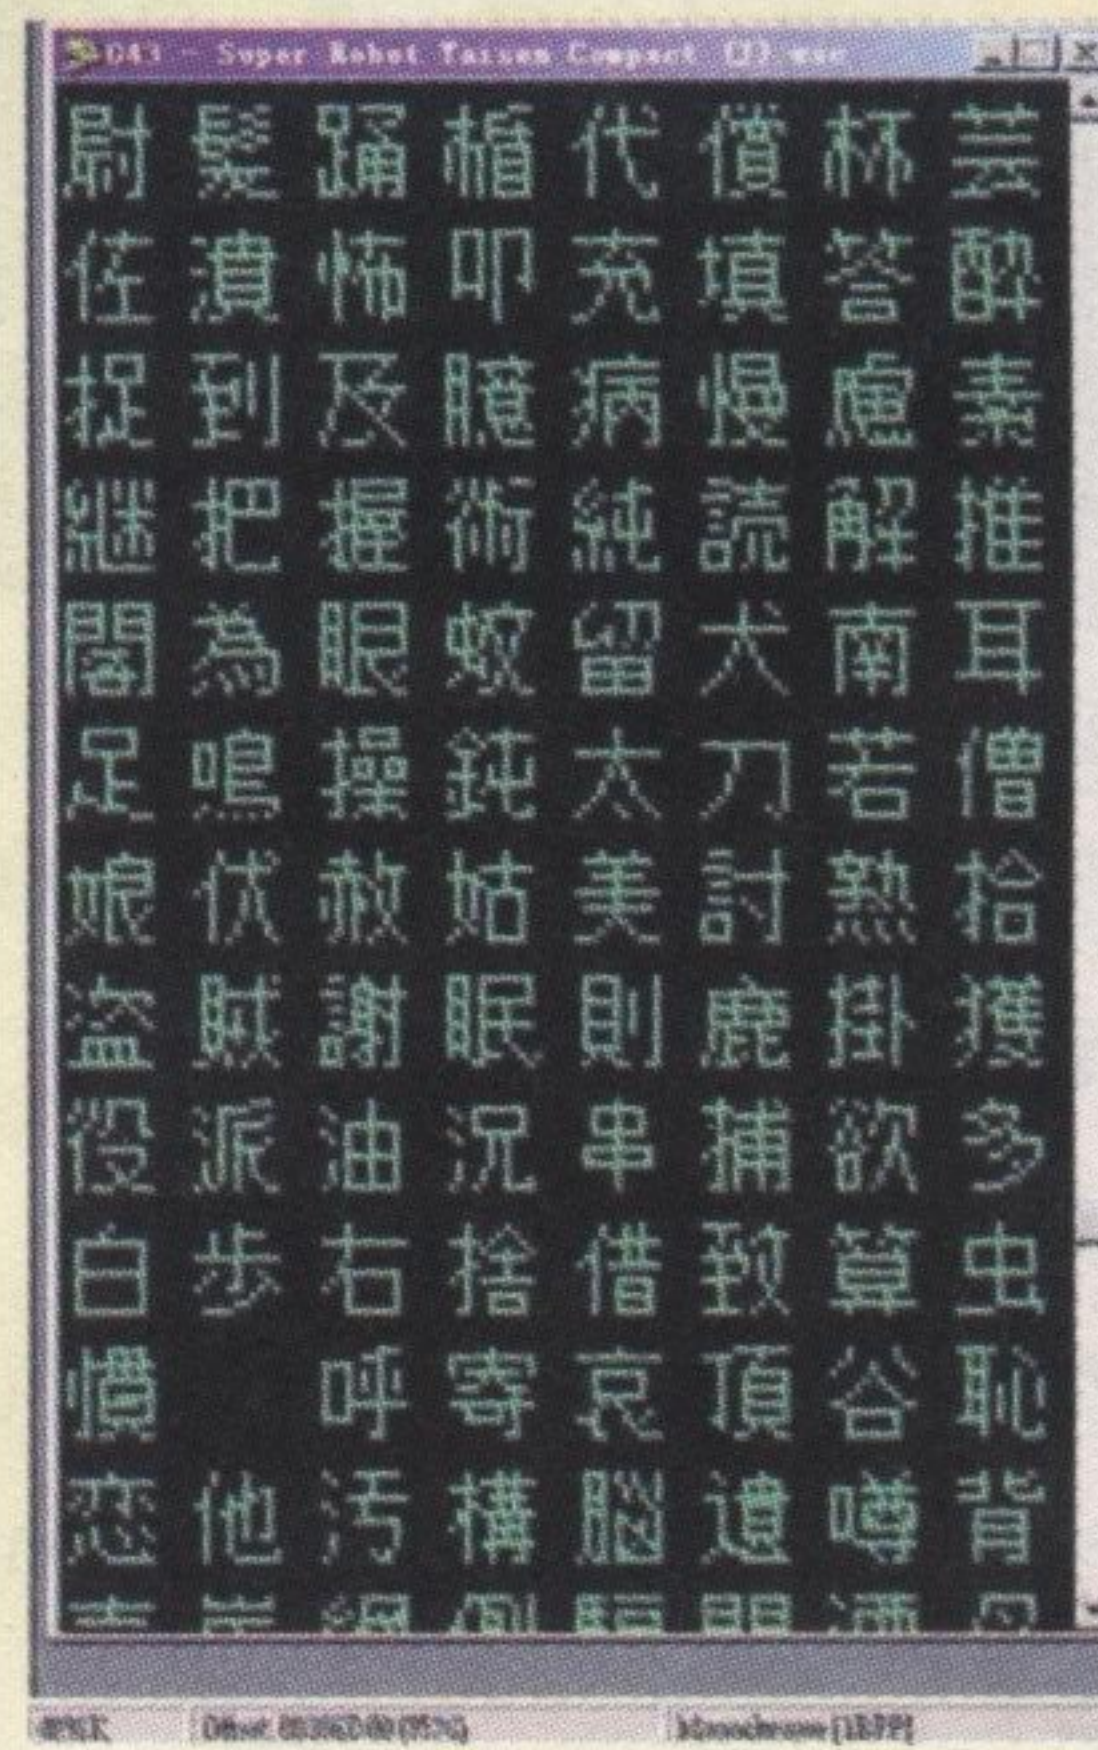 043 - Super Robot Taisen Compact (J).wsc
尉髪踊楯代償杯芸
佐潰怖叩充填答酔
捉到及臆病慢慮素
継把握術純読解推
閣為眼蚊留犬南耳
足鳴操鈍太刀若僧
娘伏赦姑美討熟拾
盗賊謝眠則鹿掛獲
役派油況串捕欲多
白歩右捨借致算虫
慣 呼寄哀頂谷恥
恋他汚構脳遺噂背
Monochrome [1BPP]